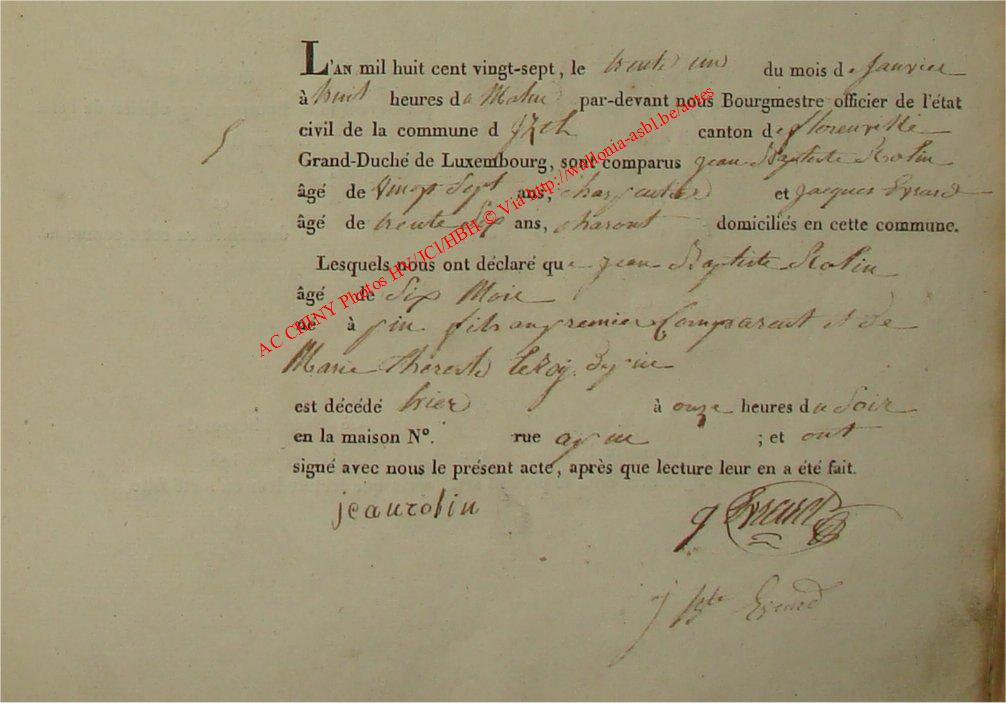 L'AN mil huit cent vingt-sept, le trente un du mois de Janvier
à huit heures du Matin par-devant nous Bourgmestre officier de l'état
5
civil de la commune d'Izel canton de florenville
Grand-Duché de Luxembourg, sont comparus jean Baptiste Rolin
âgé de vingt Sept ans, charpentier et jacques Evrard
âgé de trente six ans, charont domiciliés en cette commune.
Lesquels nous ont déclaré que jean Baptiste Rolin
âgé de Six Mois
né à pin fils au premier Comparent et de
Marie therese leroy de pin
est décédé hier à onze heures du Soir
en la maison N°. rue a pin ; et ont
signé avec nous le présent acte, après que lecture leur en a été fait.
jeanrolin
Evrard
j Bte
AC CHINY Photos HW/ICI/HBH © Via http://wallonia-asbl.be/actes